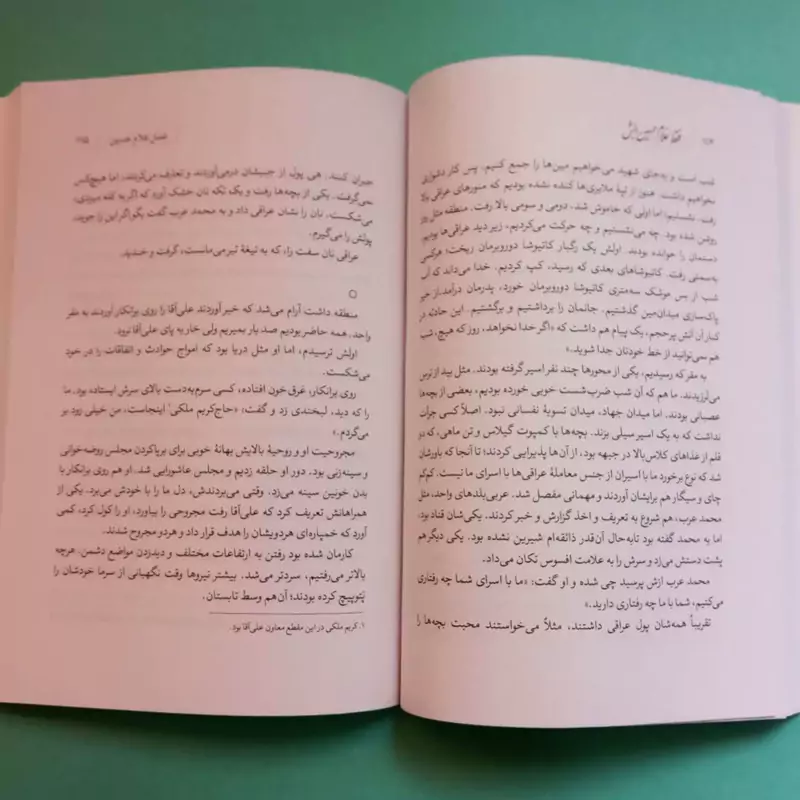 فقط غلام حسین باش
شب است و به‌جای شهید می‌خواهیم مین‌ها را جمع کنیم. پس کار دشواری
نخواهیم داشت. هنوز از تپۀ ملایری‌ها کنده نشده بودیم که منورهای عراقی بالا
رفت. نشستیم؛ اما اولی که خاموش شد، دومی و سومی بالا رفت. منطقه مثل روز
روشن شده بود. چه می‌نشستیم و چه حرکت می‌کردیم، زیر دید عراقی‌ها بودیم.
دستمان را خوانده بودند. اولش یک رگبار کاتیوشا دوروبرمان ریخت؛ هرکسی
به‌سمتی رفت. کاتیوشاهای بعدی که رسید، کپ کردیم. خدا می‌داند که آن
شب از بس موشک سه‌متری کاتیوشا دوروبرمان خورد، پدرمان درآمد. از خیر
پاک‌سازی میدان‌مین گذشتیم. جانمان را برداشتیم و برگشتیم. این حادثه در
کنار آن آتش پرحجم، یک پیام هم داشت که «اگر خدا نخواهد، روز که هیچ، شب
هم نمی‌توانید از خط خودتان جدا شوید.»
به مقر که رسیدیم، یکی از محورها چند نفر اسیر گرفته بودند. مثل بید از ترس
می‌لرزیدند. ما هم که آن شب ضرب‌شست خوبی خورده بودیم، بعضی از بچه‌ها
عصبانی بودند. اما میدان جهاد، میدان تسویۀ نفسانی نبود. اصلاً کسی جرأت
نداشت که به یک اسیر سیلی بزند. بچه‌ها با کمپوت گیلاس و تن ماهی، که دو
قلم از غذاهای کلاس‌بالا در جبهه بود، از آن‌ها پذیرایی کردند؛ تا آنجا که باورشان
شد که نوع برخورد ما با اسیران از جنس معاملۀ عراقی‌ها با اسرای ما نیست. کم‌کم
چای و سیگار هم برایشان آوردند و مهمانی مفصل شد. عربی‌بلدهای واحد، مثل
محمد عرب، هم شروع به تعریف و اخذ گزارش و خبر کردند. یکی‌شان قناد بود،
اما به محمد گفته بود تابه‌حال آن‌قدر ذائقه‌ام شیرین نشده بود. یکی دیگر هم
پشت دستش می‌زد و سرش را به علامت افسوس تکان می‌داد.
محمد عرب ازش پرسید چی شده و او گفت: «ما با اسرای شما چه رفتاری
می‌کنیم، شما با ما چه رفتاری دارید.»
تقریباً همه‌شان پول عراقی داشتند، مثلاً می‌خواستند محبت بچه‌ها را
فصل غلام حسین
جبران کنند. هی پول از جیبشان درمی‌آوردند و تعارف می‌کردند، اما هیچ‌کس
نمی‌گرفت. یکی از بچه‌ها رفت و یک تکه نان خشک آورد که اگر به کله میزدی،
می‌شکست. نان را نشان عراقی داد و به محمد عرب گفت بگو اگر این را جوید،
پولش را می‌گیرم.
عراقی نان سفت را، که به تیغۀ تبر می‌مانست، گرفت و خندید.
منطقه داشت آرام می‌شد که خبر آوردند علی‌آقا را روی برانکار آوردند به مقر
واحد. همه حاضر بودیم صد بار بمیریم ولی خار به پای علی‌آقا نرود.
اولش ترسیدم، اما او مثل دریا بود که امواج حوادث و اتفاقات را در خود
می‌شکست.
روی برانکار، غرق خون افتاده، کسی سرم‌به‌دست بالای سرش ایستاده بود. ما
را که دید، لبخندی زد و گفت: «حاج‌کریم ملکی¹ اینجاست، من خیلی زود بر
می‌گردم.»
مجروحیت او و روحیۀ بالایش بهانۀ خوبی برای برپاکردن مجلس روضه‌خوانی
و سینه‌زنی بود. دور او حلقه زدیم و مجلس عاشورایی شد. او هم روی برانکار با
بدن خونین سینه می‌زد. وقتی می‌بردندش، دل ما را با خودش می‌برد. یکی از
همراهانش تعریف کرد که علی‌آقا رفت مجروحی را بیاورد، او را کول کرد، کمی
آورد که خمپاره‌ای هردویشان را هدف قرار داد و هر دو مجروح شدند.
کارمان شده بود رفتن به ارتفاعات مختلف و دیدزدن مواضع دشمن. هرچه
بالاتر می‌رفتیم، سردتر می‌شد. بیشتر نیروها وقت نگهبانی از سرما خودشان را
پتوپیچ کرده بودند؛ آن‌هم وسط تابستان.
۱. کریم ملکی در این مقطع معاون علی‌آقا بود.